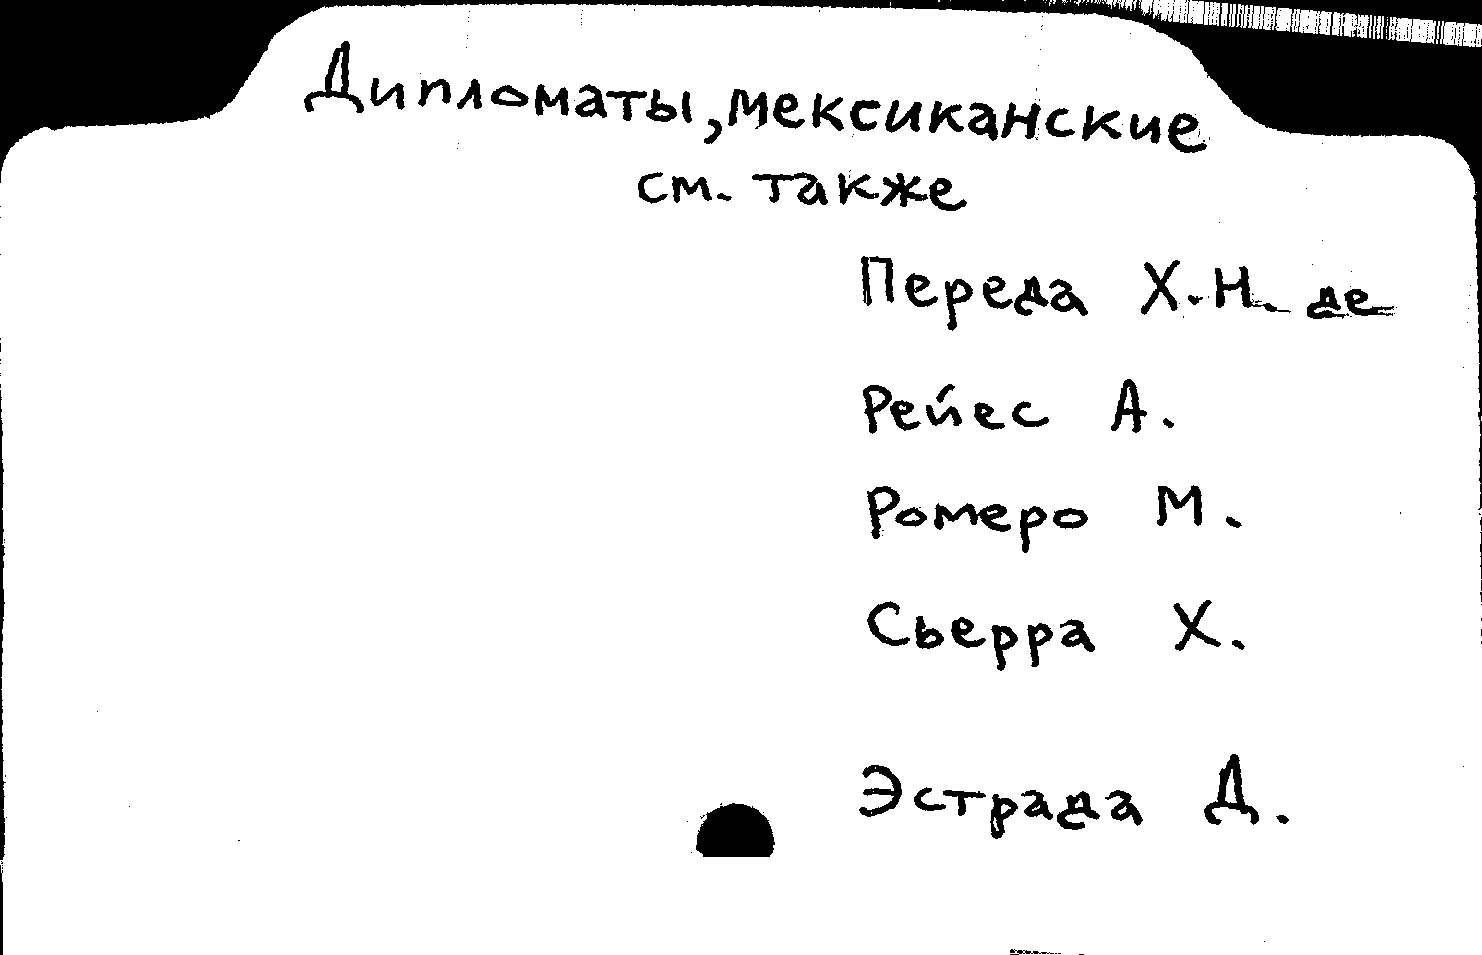 Дипломаты, мексиканские
см. также
Переда Х.Н. де
Рейес А.
Ромеро М.
Сьерра Х.
Эстрада Д.